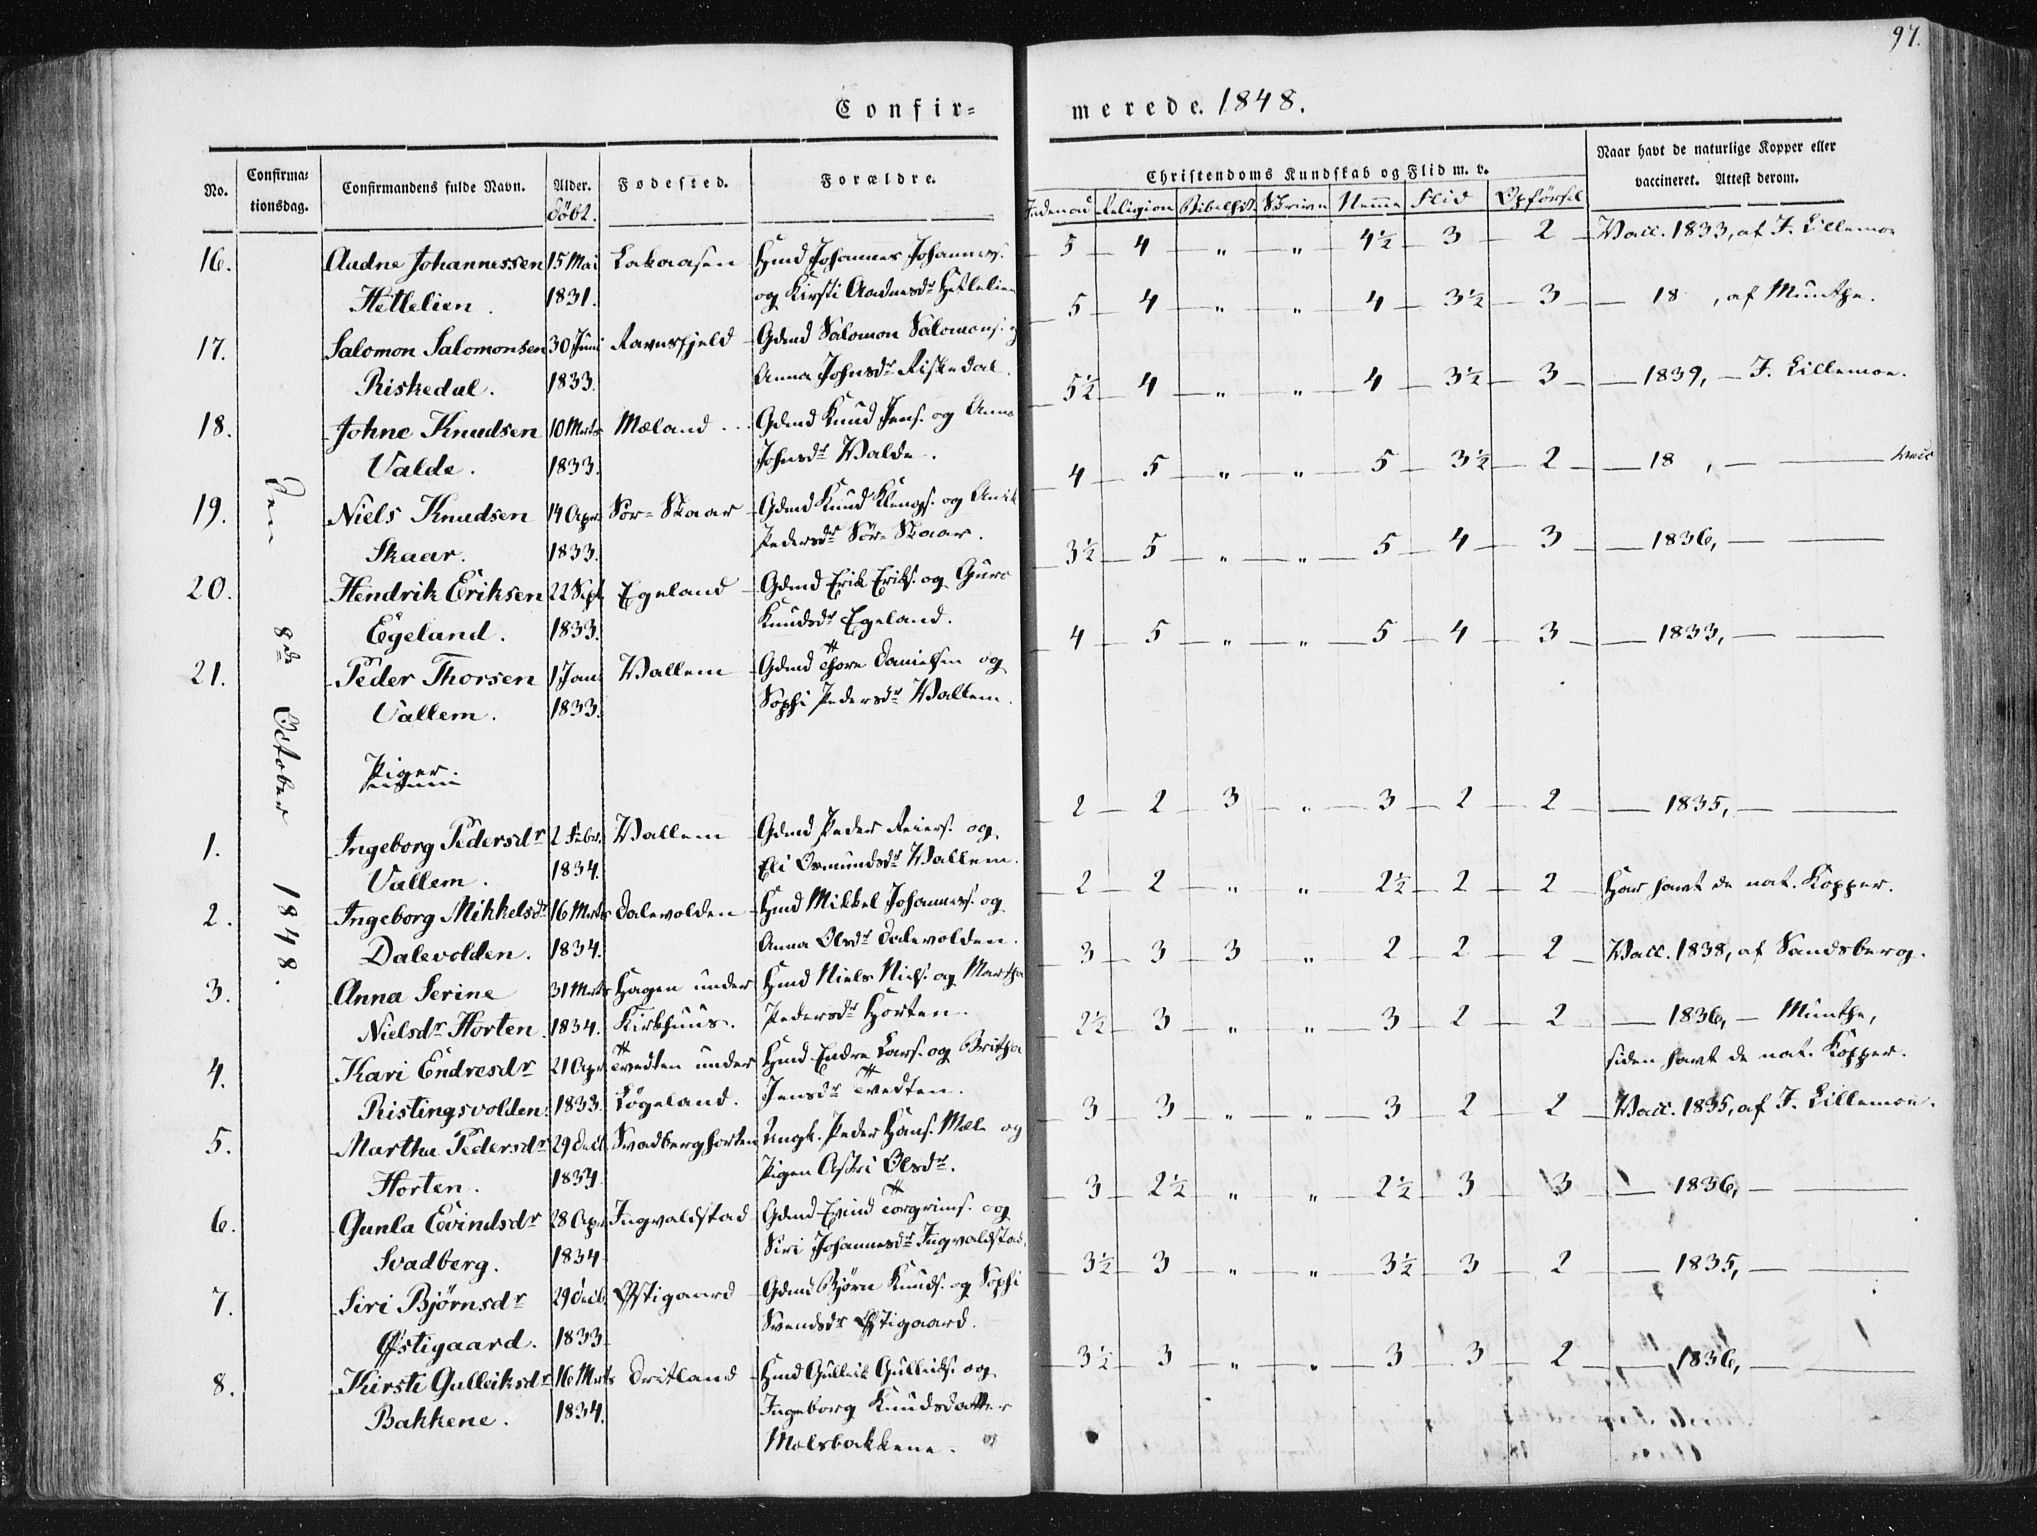 97.
Confir=
merede. 1848.
No.
Confirma=
tionsdag.
Confirmandens fulde Navn.
Alder.
Döbt.
Fødested.
Forældre.
Christendoms Kundskab og Flid m. v.
Indenad Religion Bibelhist. Skrivn Nemme Flid Opförsel
Naar havt de naturlige Kopper eller
vaccineret. Attest derom.
Den 8de October 1848.
16. Audne Johannessen 15 Mai Lakaasen Hmd Johannes Johannes. 5 4 " " 4½ 3 2 Vacc. 1833, af F. Lillemoe
Hetlelien. 1831. og Kirsti Aadnesdr Hetlelien
17. Salomon Salomonsen 30 Juni Ravnsfjeld Gdmd Salomon Salomons. og 5 4 " " 4 3½ 3 — 18 , af Munthe.
Riskedal. 1833. Anna Johnsdr Riskedal.
18. Johne Knudsen 10 Marts Mæland Gdmd Knud Jens. og Anna 5½ 4 " " 4 3½ 3 — 1839, — F. Lillemoe.
Valde. 1833. Johnsdr Walde.
19. Niels Knudsen 14 Apr. Sör-Skaar Gdmd Knud og 4 5 " " 5 3½ 2 — 18 , — —
Skaar. 1833. Pedersdr Sör-Skaar.
20. Hendrik Eriksen 22 Sept. Egeland Gdmd Erik Eriks. og Guro 3½ 5 " " 5 4 3 — 1836, — —
Egeland. 1833. Knudsdr Egeland.
21. Peder Thorsen 1 Jan. Wallem Gdmd Thore Danielsen og 4 5 " " 5 4 3 — 1833, — —
Vallem. 1833. Sophi Pedersdr Wallem.
Piger.
1. Ingeborg Pedersdr 2 Febr. Wallem Gdmd Peder Reiers. og 2 2 3 " 3 2 2 — 1835, — —
Vallem. 1834. Eli Osmundsdr Wallem.
2. Ingeborg Mikkelsdr 16 Marts Dalevolden Hmd Mikkel Johannes. og 2 2 " " 2½ 2 2 Har havt de nat. Kopper.
Dalevolden. 1834. Anna Olsdr Dalevolden.
3. Anna Serine 31 Marts Hagen under Hmd Niels Niels. og Martha 3 3 3 " 2 2 2 Vacc. 1838, af Sandsberg.
Nielsdr Horten. 1834. Kirkhuus. Pedersdr Horten.
4. Kari Endresdr 21 Apr. Tvedten under Hmd Endre Lars. og Britha 2½ 3 " " 3 2 2 — 1836, — Munthe,
siden havt de nat. Kopper.
Ristingsvolden. 1833. Løgeland. Jensdr Tvedten.
5. Martha Pedersdr 29 Decb. Svadberghorten Ungk. Peder Hans. Mæle og 3 3 " " 3 2 2 Vacc. 1835, af F. Lillemoe.
Horten. 1834. Pigen Astri Olsdr.
6. Gunla Eivindsdr 28 Apr. Ingvaldstad Gdmd Evind Torgrims. og 3 2½ " " 2½ 3 3 — 1836, — —
Svadberg. 1834. Siri Johannesdr Ingvaldstad.
7. Siri Bjørnsdr 29 Decb. Østigaard Gdmd Bjørn Knuds. og Sophi 3½ 3 " " 3½ 3 2 — 1835, — —
Østigaard. 1833. Svendsdr Østigaard.
8. Kirsti Gulleiksdr 16 Marts Dritland Hmd Gulleik Gulleiks. og 3½ 3 " " 3 3 2 — 1836, — —
Bakkene. 1834. Ingeborg Knudsdatter
Molsbakkene.